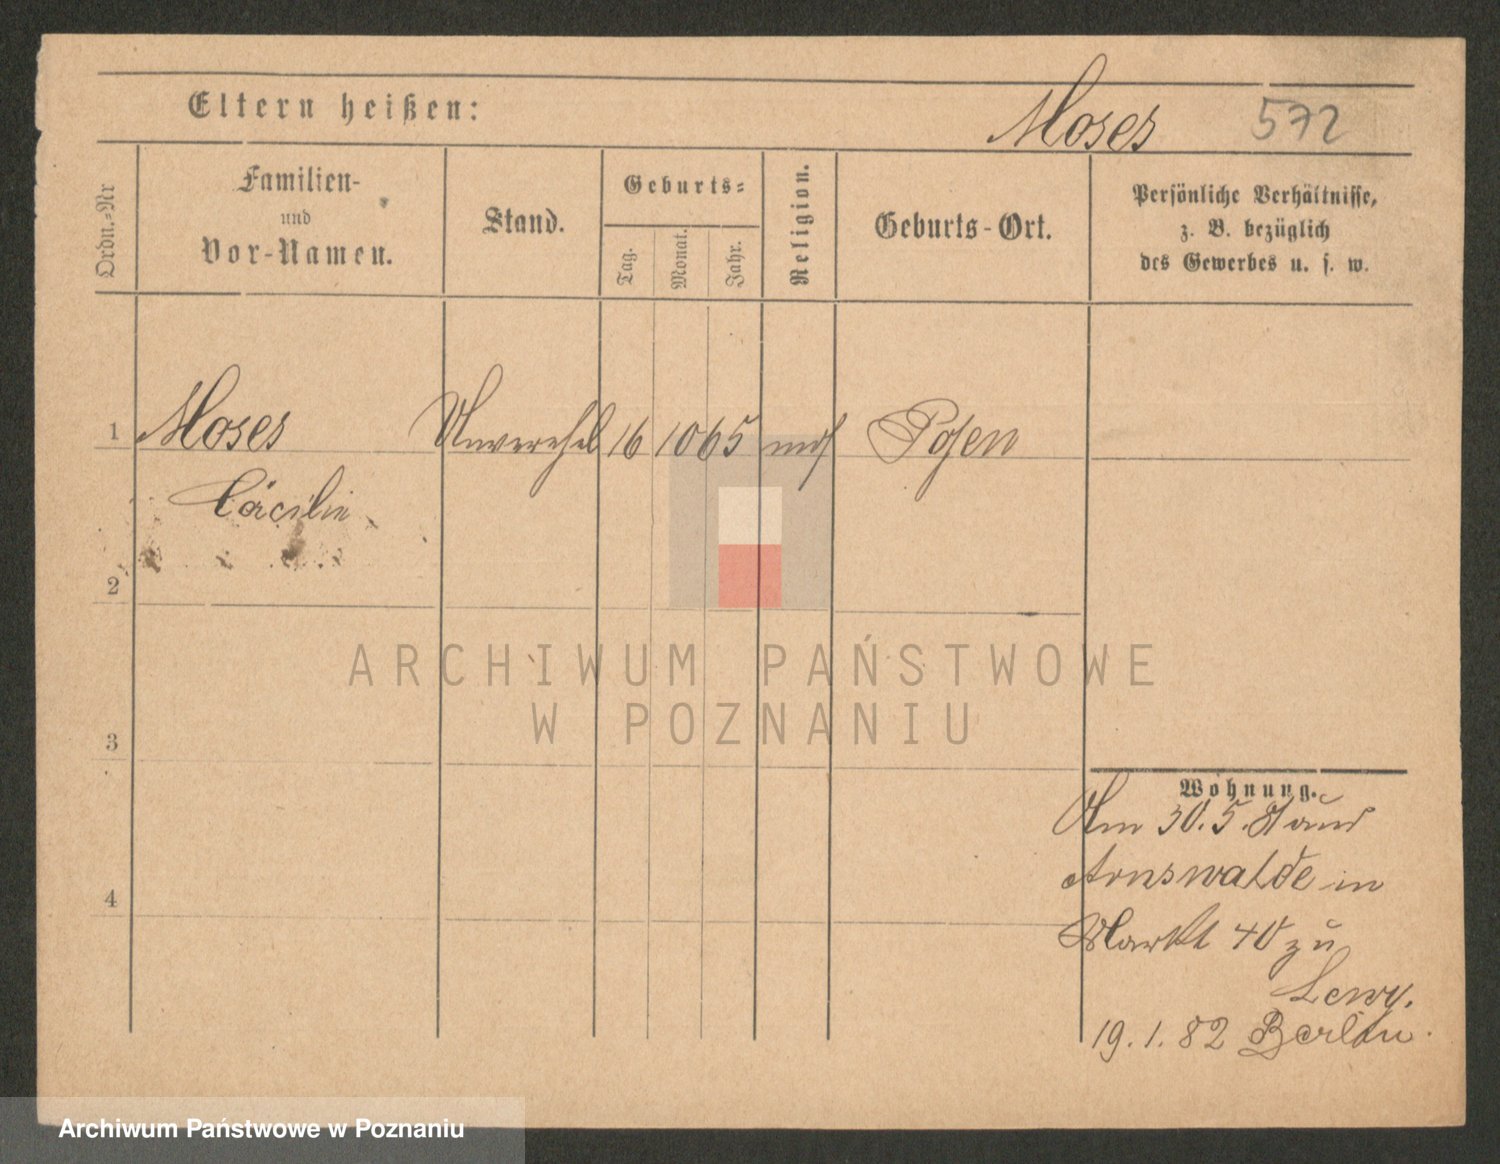 Eltern heißen:
Moses 572
Ordn.=Nr
Familien-
und
Vor-Namen.
Stand.
Geburts=
Tag.
Monat.
Jahr.
Religion.
Geburts-Ort.
Persönliche Verhältnisse,
z. B. bezüglich
des Gewerbes u. s. w.
1 Moses Unverehel 16 10 65 mos Posen
Cäcilie
2
3
4
ARCHIWUM PAŃSTWOWE
W POZNANIU
Wohnung.
Am 30.5.81 aus
Arnswalde in
Markt 40 zu
Lewy.
19.1.82 Berlin.
Archiwum Państwowe w Poznaniu